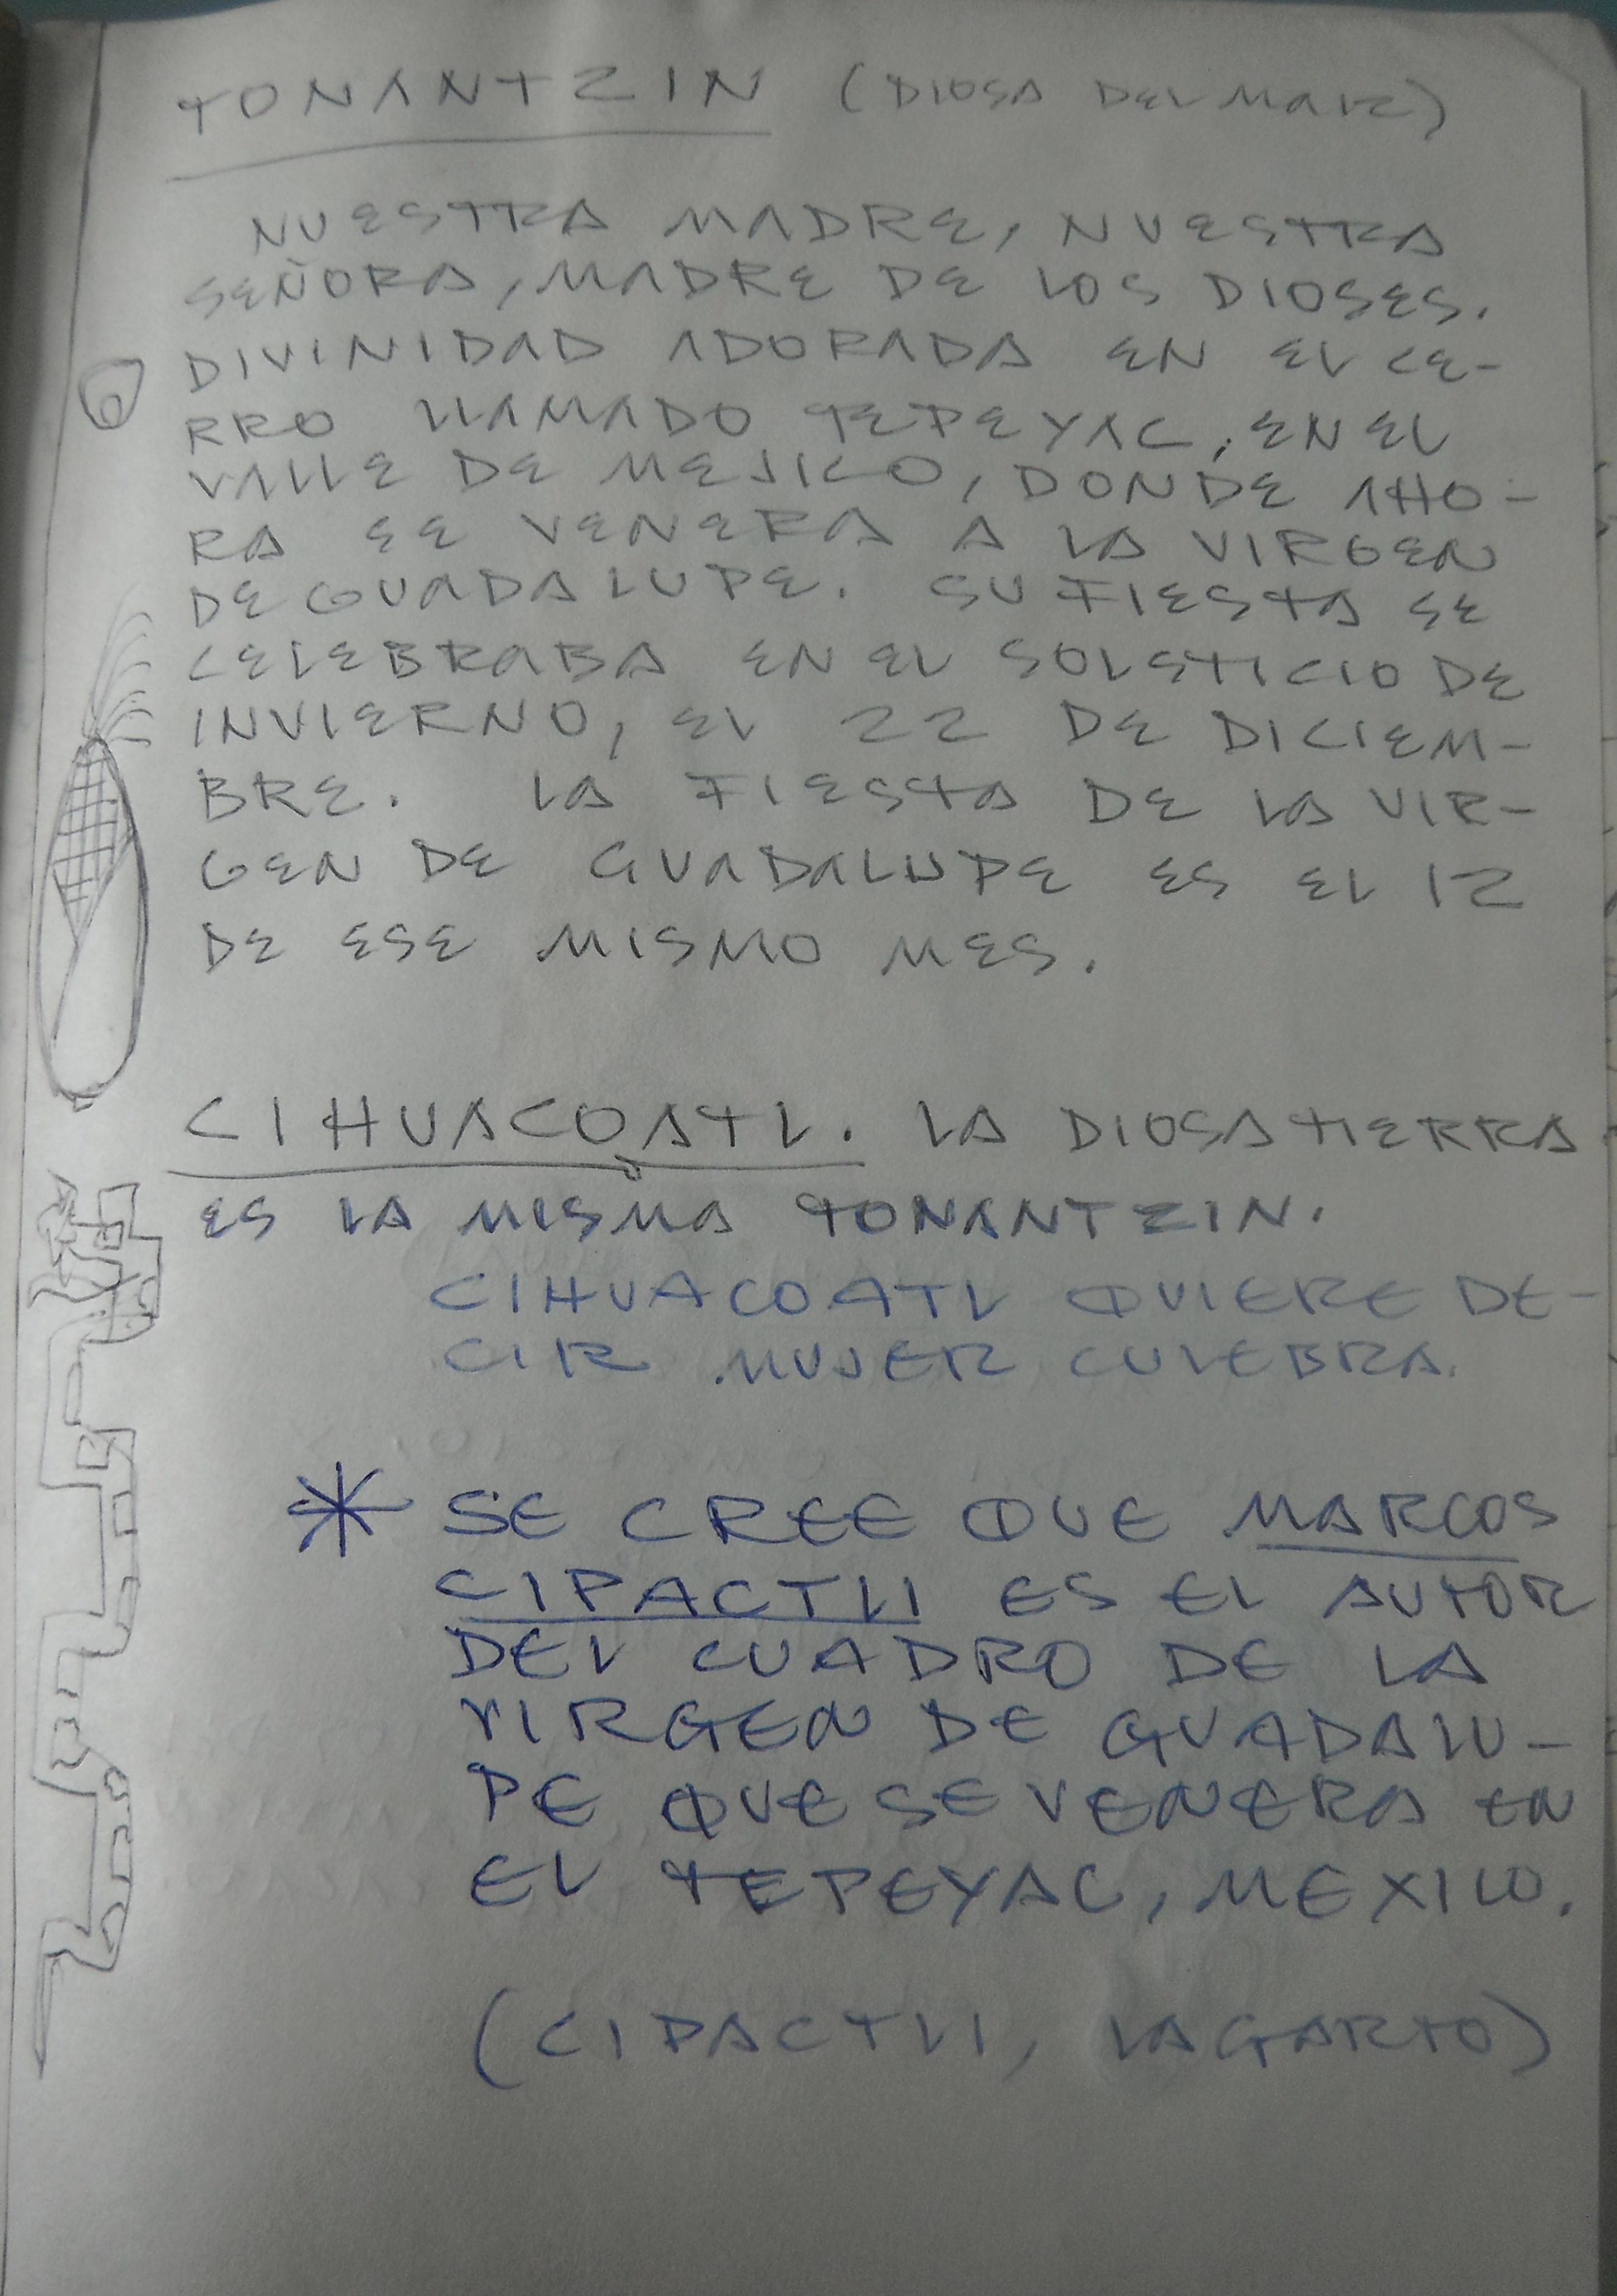 TONANTZIN (DIOSA DEL MAR)
NUESTRA MADRE, NUESTRA
SEÑORA, MADRE DE LOS DIOSES.
DIVINIDAD ADORADA EN EL CE-
RRO LLAMADO TEPEYAC, EN EL
VALLE DE MEJICO, DONDE AHO-
RA SE VENERA A LA VIRGEN
DE GUADALUPE. SU FIESTA SE
CELEBRABA EN EL SOLSTICIO DE
INVIERNO, EL 22 DE DICIEM-
BRE. LA FIESTA DE LA VIR-
GEN DE GUADALUPE ES EL 12
DE ESE MISMO MES.
CIHUACOATL. LA DIOSA TIERRA
ES LA MISMA TONANTZIN.
CIHUACOATL QUIERE DE-
CIR MUJER CULEBRA.
* SE CREE QUE MARCOS
CIPACTLI ES EL AUTOR
DEL CUADRO DE LA
VIRGEN DE GUADALU-
PE QUE SE VENERA EN
EL TEPEYAC, MEXICO.
(CIPACTLI, LAGARTO)